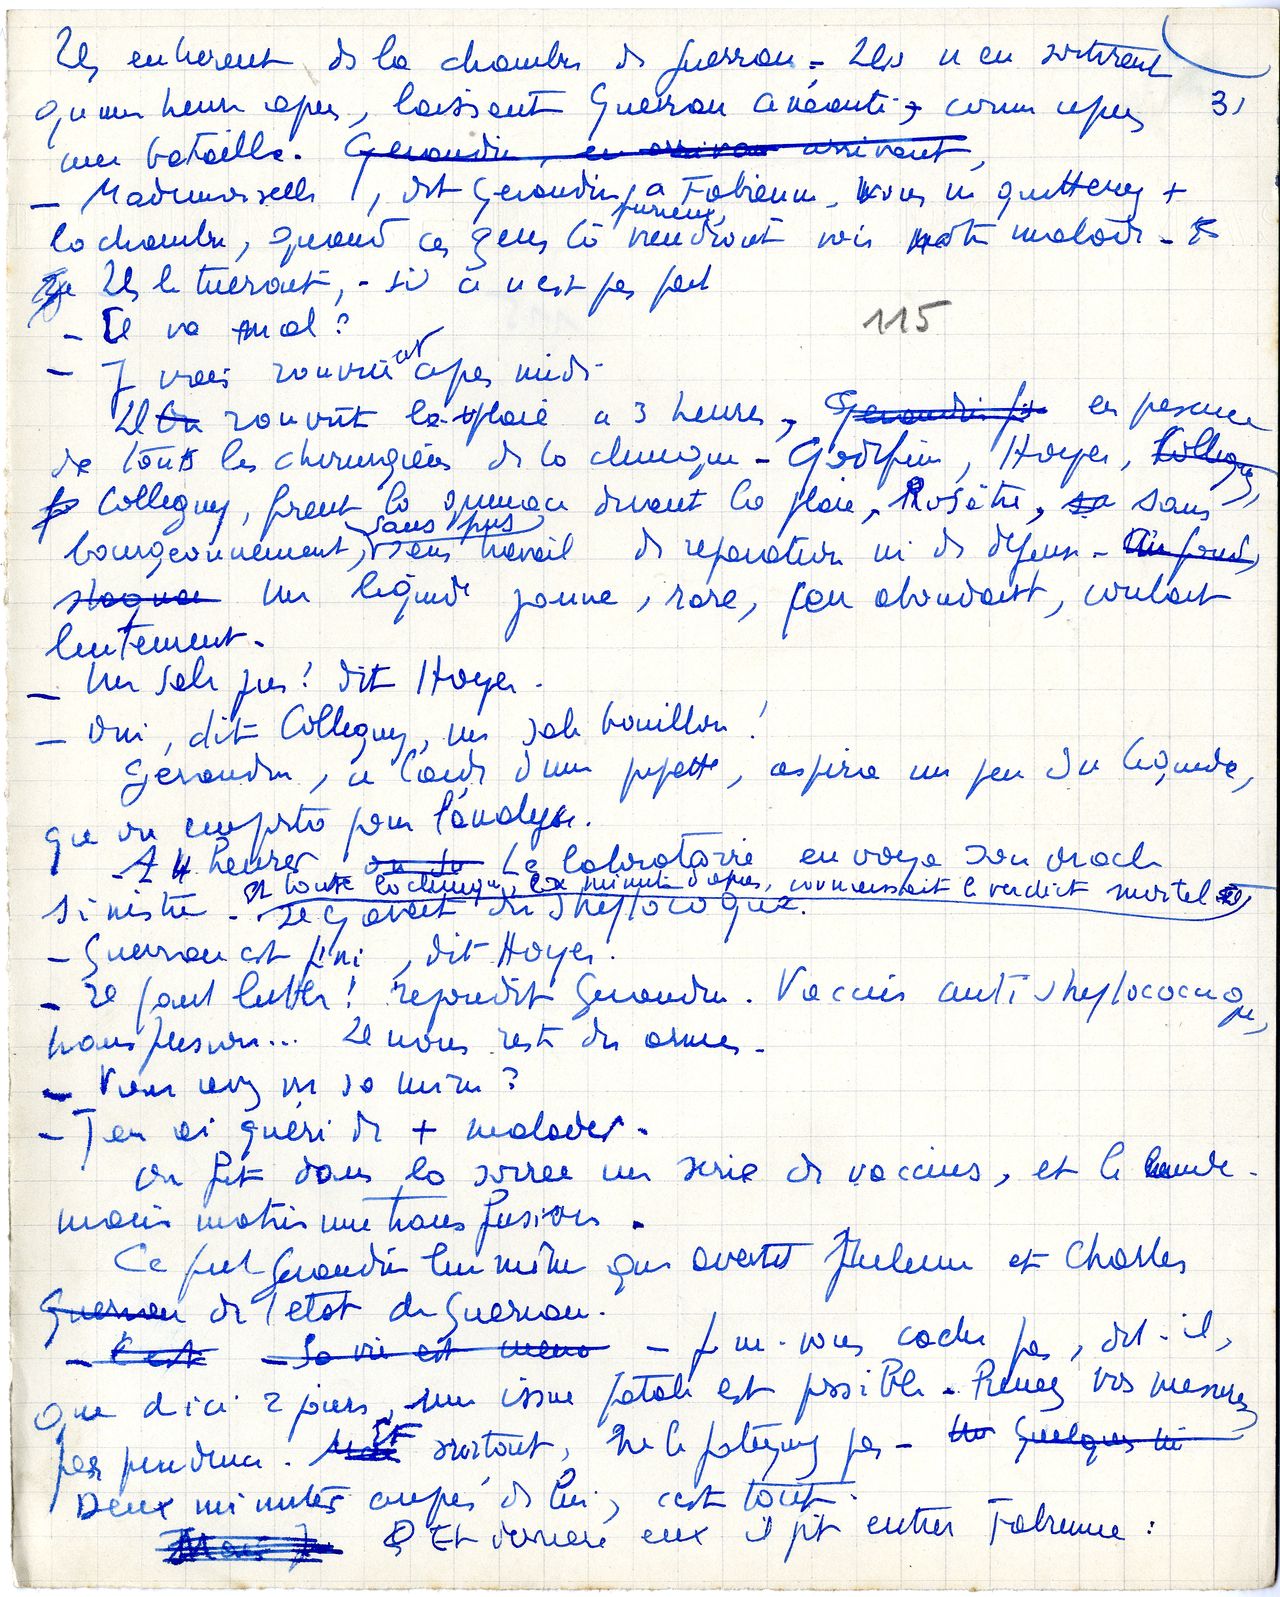 Ils entrerent ds la chambre de Guerran. Ils n'en sortirent
qu'une heure apres, laissant Guerran anéanti, comme apres 31
une bataille. Geraudin, en arrivant arrivant,
— Mademoiselle, dit Geraudin, furieux, a Fabienne, vous ne quitterez +
la chambre, quand ces gens là viendront voir notre malade.
Ils le tueront, - si ce n'est pas fait
— Il va mal ?
115
— Je vais rouvrir cet apres midi.
Il On rouvrit la plaie a 3 heures, Geraudin fit en presence
de tous les chirurgiens de la clinique. Godefrin, Hoyer, Collegny,
Collegny, firent la grimace devant la plaie, Rosâtre, sans
bourgeonnement, sans pus, sans travail de reparation ni de defense. Au fond,
stagnait Un liquide jaune, rare, peu abondant, coulait
lentement.
— Un sale pus ! dit Hoyer.
— Oui, dit Collegny, un sale bouillon !
Geraudin, a l'aide d'une pipette, aspira un peu du liquide,
que on emporta pour l'analyse.
A 4 heures Le laboratoire envoya son oracle
sinistre. Et toute la clinique, dix minutes apres, connaissait le verdict mortel
Il y avait du Streptocoque.
— Guerran est fini, dit Hoyer.
— Il faut lutter ! repondit Geraudin. Vaccin anti streptococcique,
transfusion... Il nous reste des armes.
— Vous avez vu sa mine ?
— J'en ai guéri de + malades.
On fit dans la soiree une serie de vaccins, et le lende-
main matin une transfusion.
Ce fut Geraudin lui même qui avertit Julienne et Charles
Guerran de l'etat de Guerran.
— C'est — Sa vie est mena — Je ne vous cache pas, dit-il,
que d'ici 2 jours, une issue fatale est possible. Prenez vos mesures
par prudence. Mais Et surtout, ne le fatiguez pas. Quelques mi
Deux minutes aupres de lui, c'est tout.
Mais Je Et derriere eux il fit entrer Fabienne :